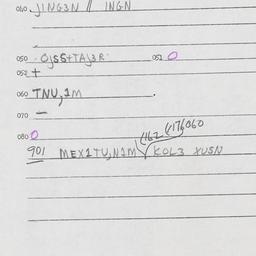 040 JING3N // INGN
050 OjSS+TAJ3R 051 O
052 +
060 TNU,1M .
070 —
080 O
901 MEX1TU,N1M KOL3 XUSN
(162 (176060